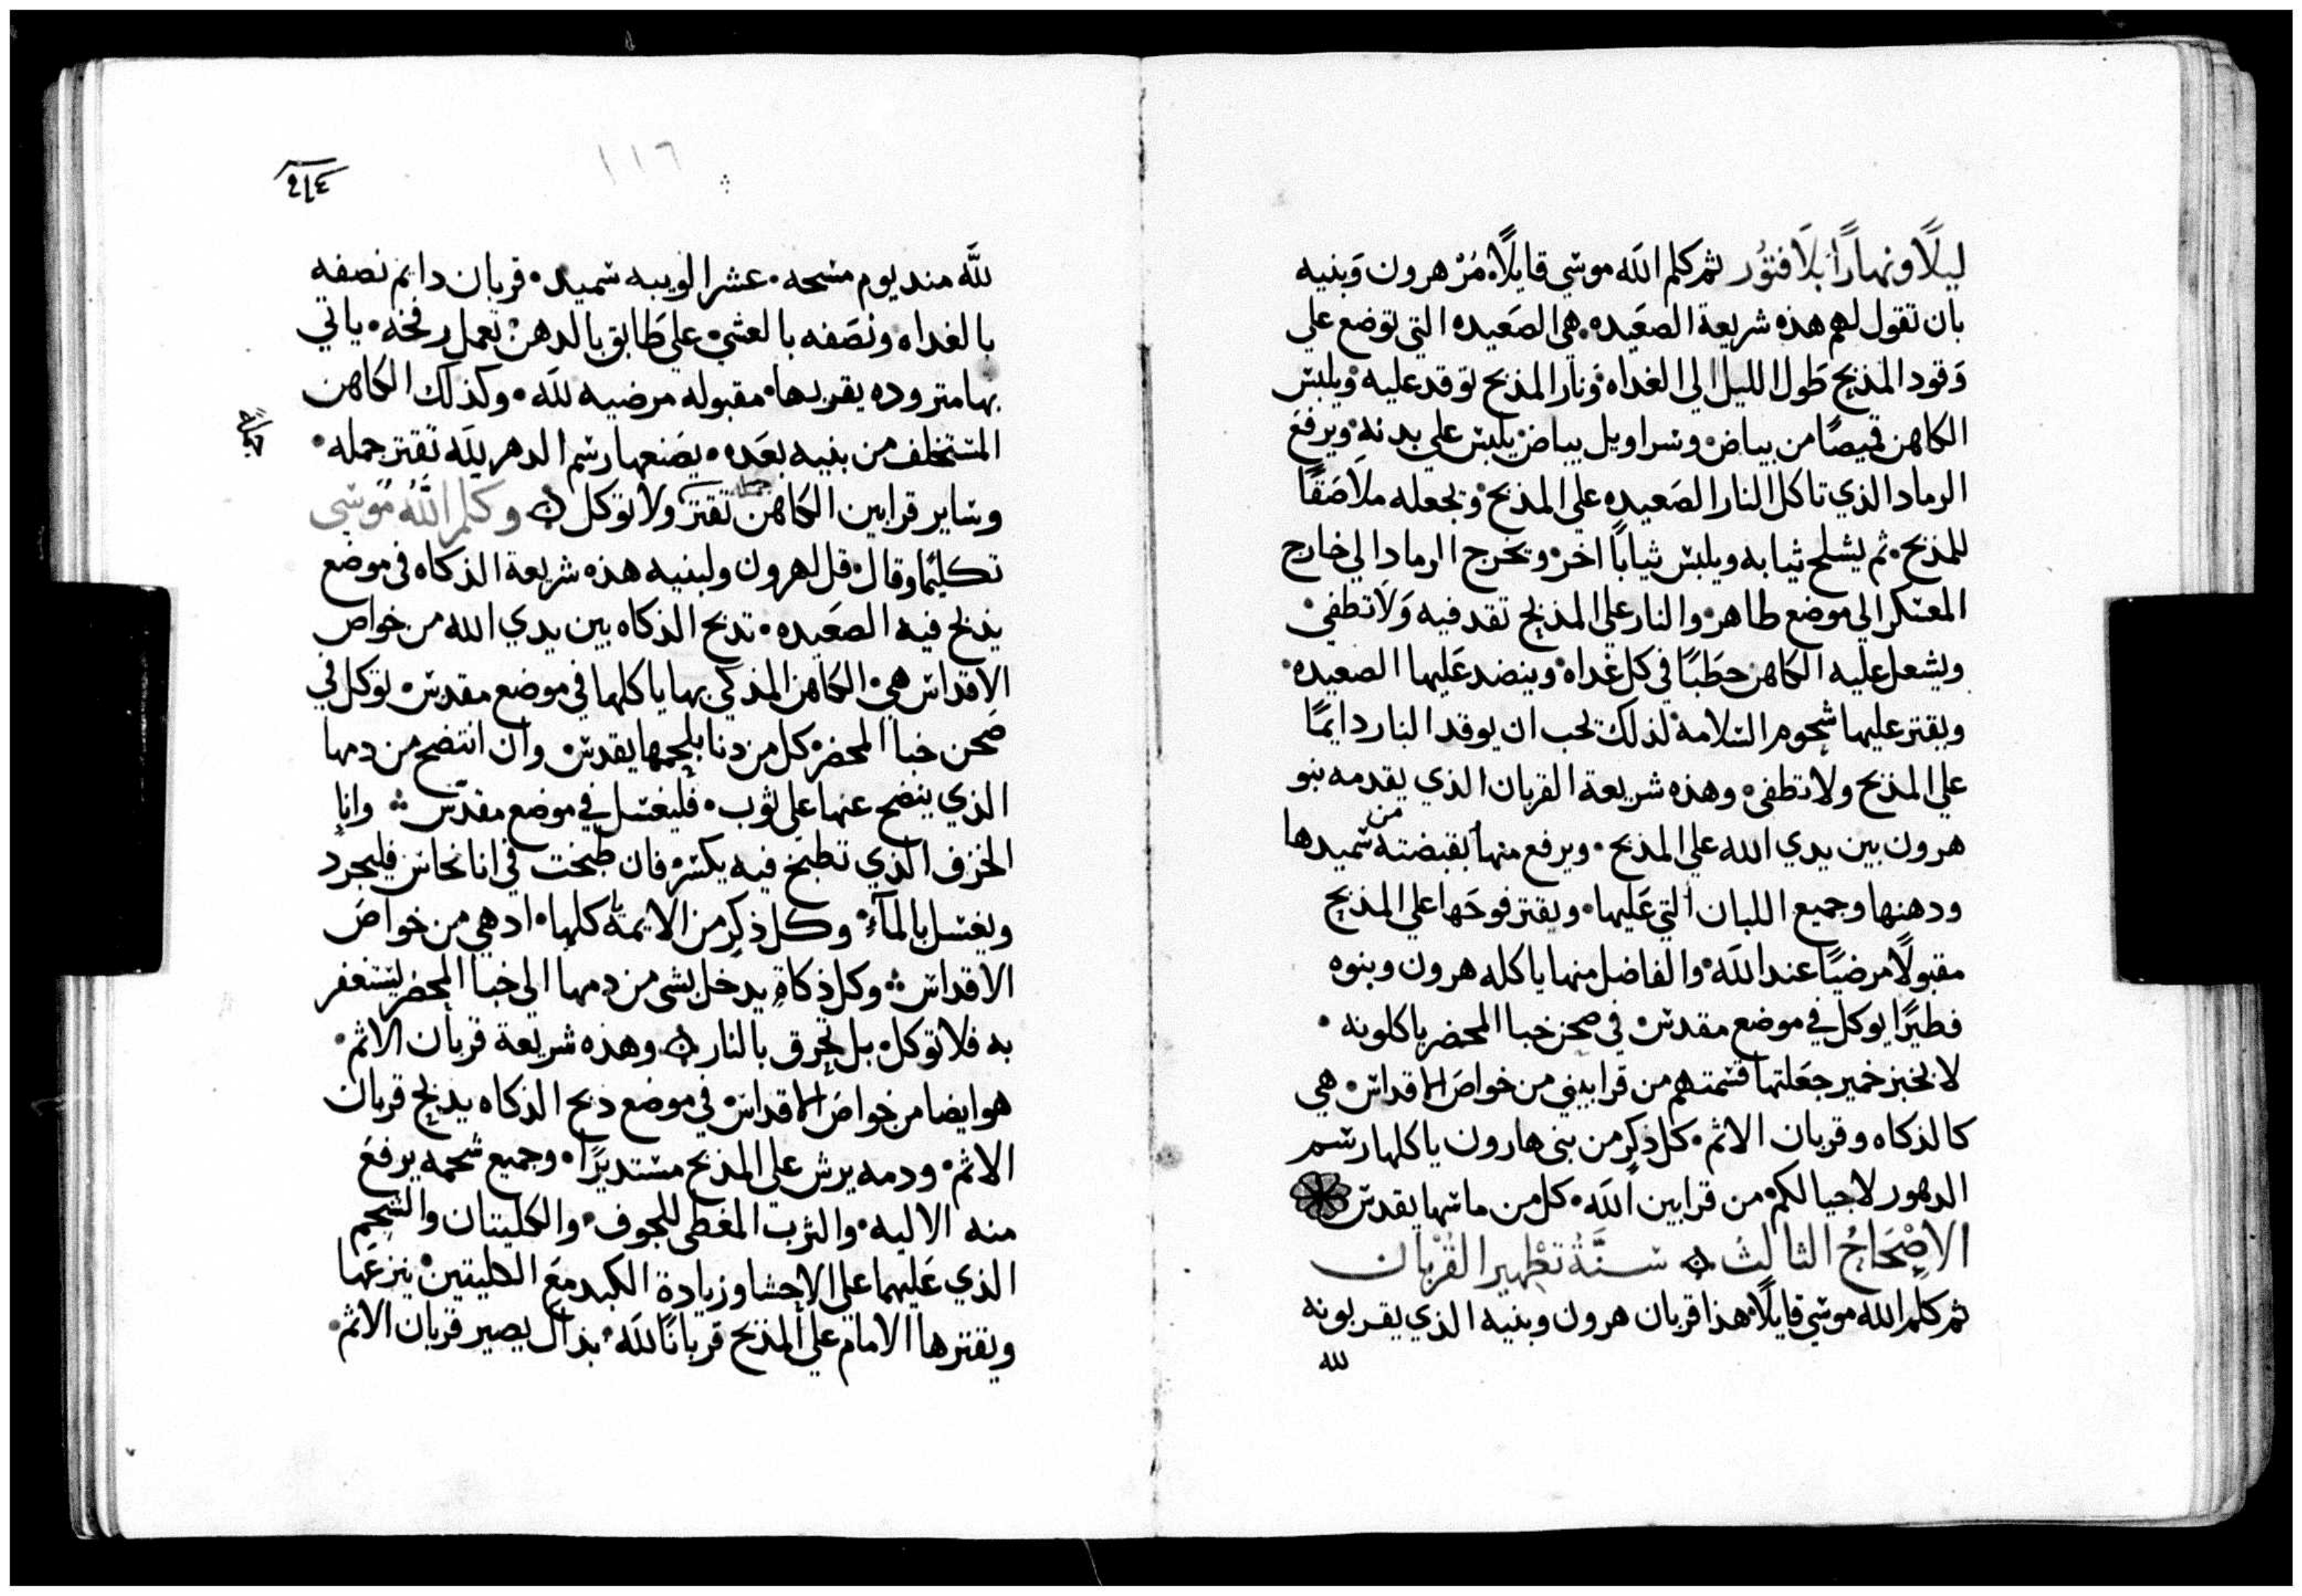 ليلًا ونهارًا بلا فتور ثم كلم الله موسي قايلًا مُرْ هرون وَبنيه
بان تقول لهم هذه شريعة الصعَيده هي الصعَيده التي توضع علي
وَقود المذبح طَول الليل الي الغداه ونار المذبح توقد عليه ويلبس
الكاهن قميصًا من بياض وسراويل بياض يلبس علي بدنه ويرفع
الرماد الذي تاكل النار الصَعيده علي المذبح ويجعله ملاصَقًا
للمذبح ثم يشلح ثيابه ويلبس ثيابًا اخر ويخرج الرماد الي خارج
المعسكر الي موضع طاهر والنار علي المذبح تقد فيه وَلا تطفي
ويشعل عليه الكاهن حطَبًا في كل غداه وينضد عَليها الصعيده
ويقتر عليها شحوم السلامه لذلك يجب ان يوقد النار دايمًا
علي المذبح ولا تطفي وهذه شريعة القربان الذي يقدمه بنو
هرون بين يدي الله علي المذبح ويرفع منها بقبضته من سميدها
ودهنها وجميع اللبان التي عَليها ويقتر فوحَها علي المذبح
مقبولًا مرضيًا عند الله والفاضل منها ياكله هرون وبنوه
فطيرًا يوكل في موضع مقدس في صحن خبا المحضر ياكلونه
لا يخبز خمير جعَلتها قسمتهم من قرابيني من خواصَ الاقداس هي
كالذكاه وقربان الاثم كل ذكرٍ من بني هارون ياكلها رسم
الدهور لاجيالكم من قرابين الله كل من ماسها يقدس
الاصْحَاحُ الثالث سنَّةُ تطْهير القُرْبَان
ثم كلم الله موسي قايلًا هذا قربان هرون وبنيه الذي يقربونه
لله
١١٦
لله مند يوم مسحه عشر الويبه سميد قربان دايم نصفه
بالغداه ونصَفه بالعشي علي طَابق بالدهن تعمل رفخه ياتي
بها متروده يقربها مقبوله مرضيه لله وكذلك الكاهن
المستخلف من بنيه بعَده يصَنعها رسم الدهر لله تقتر جمله
وساير قرابين الكاهن تقتر ولا توكل وكلم اللَّهُ مُوسَى
تكليمًا وقال قل لهرون ولبنيه هذه شريعة الذكاه في موضع
يذبح فيه الصعَيده تذبح الذكاه بين يدي الله من خواص
الاقداس هي الكاهن المذكي بها ياكلها في موضع مقدس توكل في
صَحن خبا المحضر كل من دنا بلحمها يقدس وان انتضح من دمها
الذي ينضح عنها علي ثوب فليغسل في موضع مقدّس وانا
الخزف الذي تطبخ فيه يكسر فان طبخت في انا نحاس فليجرد
ويغسل بالمآء وكل ذكرٍ من الايمة كلها اد هي من خواصَ
الاقداس وكل ذكاةٍ يدخل بشي من دمها الي خبا المحضر ليستغفر
به فلا توكل بل تحرق بالنار وهذه شريعة قربان الاثم
هو ايضا من خواصَ الاقداس في موضع ذبح الذكاه يذبح قربان
الاثم ودمه يرش علي المذبح مستديرًا وجميع شحمه يرفع
منه الاليه والثرب المغطي للجوف والكليتان والشحم
الذي عَليهما علي الاحشا وزيادة الكبد معَ الكليتين ينزعَها
ويقترها الامام علي المذبح قربانًا لله بذاك يصير قربان الاثم